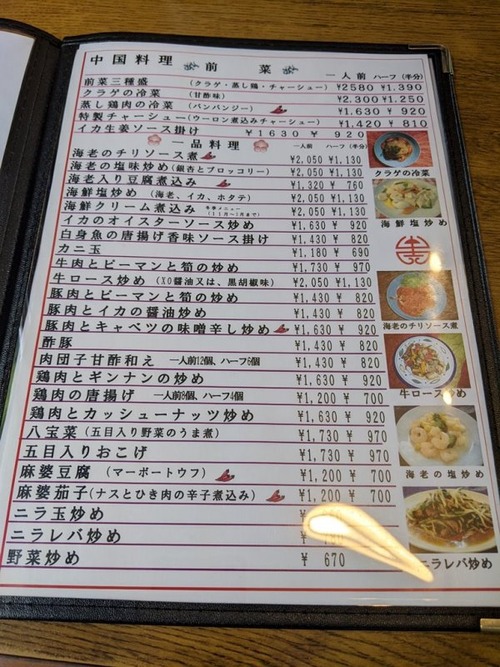 中国料理 前 菜 一人前 ハーフ(半分)
前菜三種盛 (クラゲ・蒸し鶏・チャーシュー) ¥2580 ¥1,390
クラゲの冷菜 (甘酢味) ¥2,300 ¥1,250
蒸し鶏肉の冷菜 (バンバンジー) ¥1,630 ¥ 920
特製チャーシュー(ウーロン煮込みチャーシュー) ¥1,420 ¥ 810
イカ生姜ソース掛け ¥1630 ¥ 920
一品料理 一人前 ハーフ(半分)
海老のチリソース煮 ¥2,050 ¥1,130
海老の塩味炒め(銀杏とブロッコリー) ¥2,050 ¥1,130
海老入り豆腐煮込み ¥1,320 ¥ 760
海鮮塩炒め (海老、イカ、ホタテ) ¥2,050 ¥1,130
海鮮クリーム煮込み (11月〜1月まで) ¥2,050 ¥1,130
イカのオイスターソース炒め ¥1,630 ¥ 920
白身魚の唐揚げ香味ソース掛け ¥1,430 ¥ 820
カニ玉 ¥1,180 ¥ 690
牛肉とピーマンと筍の炒め ¥1,730 ¥ 970
牛ロース炒め (XO醤油又は、黒胡椒味) ¥2,050 ¥1,130
豚肉とピーマンと筍の炒め ¥1,430 ¥ 820
豚肉とイカの醤油炒め ¥1,430 ¥ 820
豚肉とキャベツの味噌辛し炒め ¥1,630 ¥ 920
酢豚 ¥1,430 ¥ 820
肉団子甘酢和え 一人前12個、ハーフ6個 ¥1,430 ¥ 820
鶏肉とギンナンの炒め ¥1,630 ¥ 920
鶏肉の唐揚げ 一人前8個、ハーフ4個 ¥1,200 ¥ 700
鶏肉とカッシューナッツ炒め ¥1,630 ¥ 920
八宝菜(五目入り野菜のうま煮) ¥1,730 ¥ 970
五目入りおこげ ¥1,730 ¥ 970
麻婆豆腐 (マーボートウフ) ¥1,200 ¥ 700
麻婆茄子(ナスとひき肉の辛子煮込み) ¥1,200 ¥ 700
ニラ玉炒め ¥
ニラレバ炒め ¥
野菜炒め ¥ 670
クラゲの冷菜
海鮮塩炒め
海老のチリソース煮
牛ロース炒め
海老の塩炒め
ニラレバ炒め